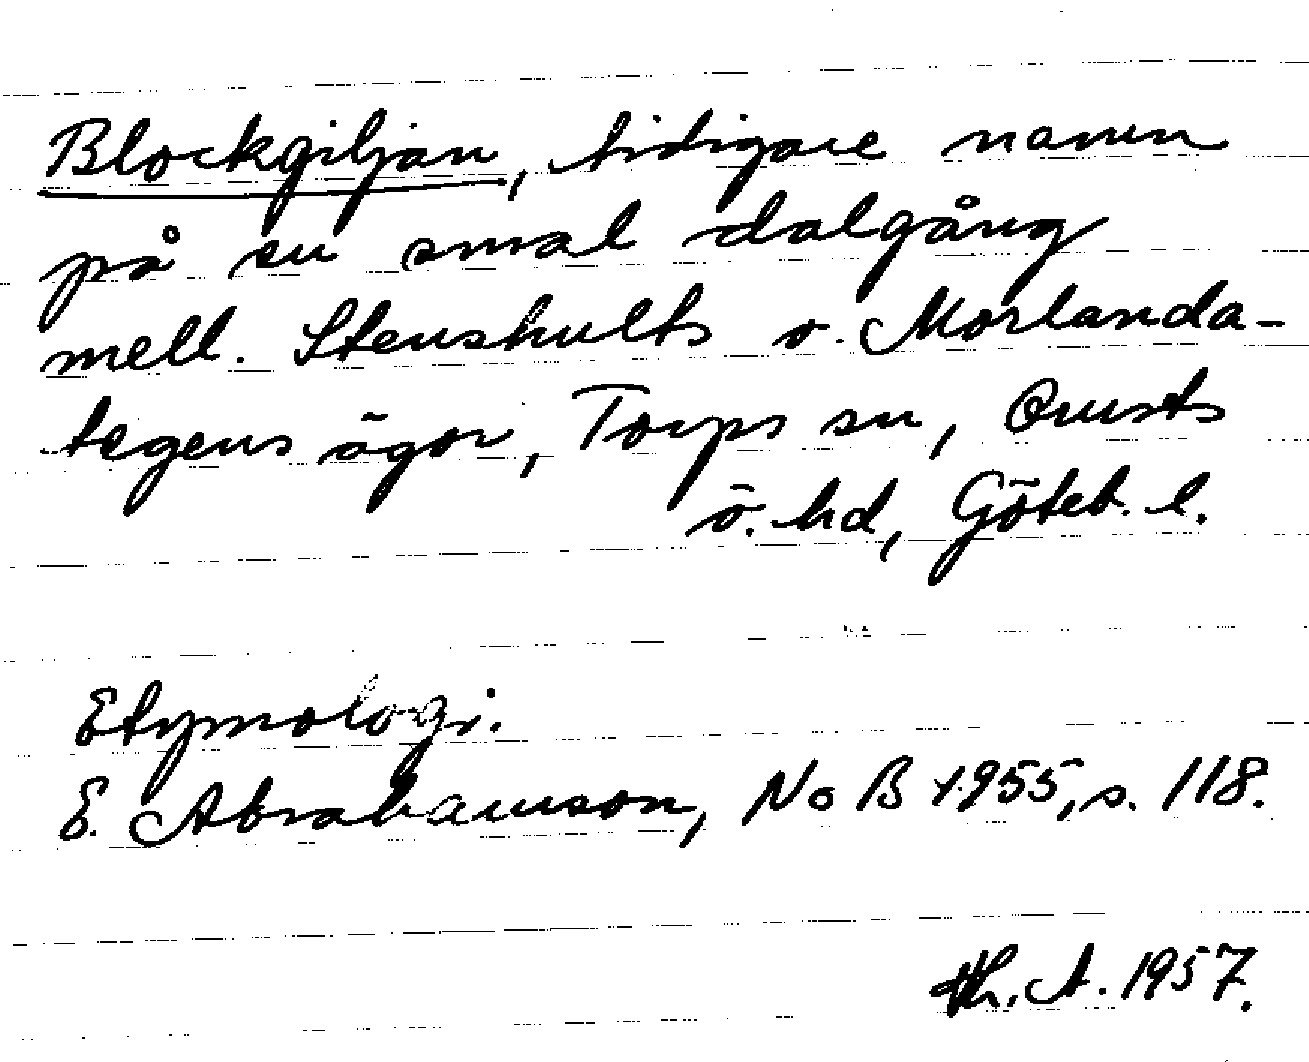 Blockgiljan, tidigare namn
på en smal dalgång
mell. Stenshults o. Morlanda-
tegens ägor, Torps sn, Orusts
ö. hd, Göteb. l.
Etymologi.
E. Abrahamson, NoB 1955, s. 118.
Th. A. 1957.